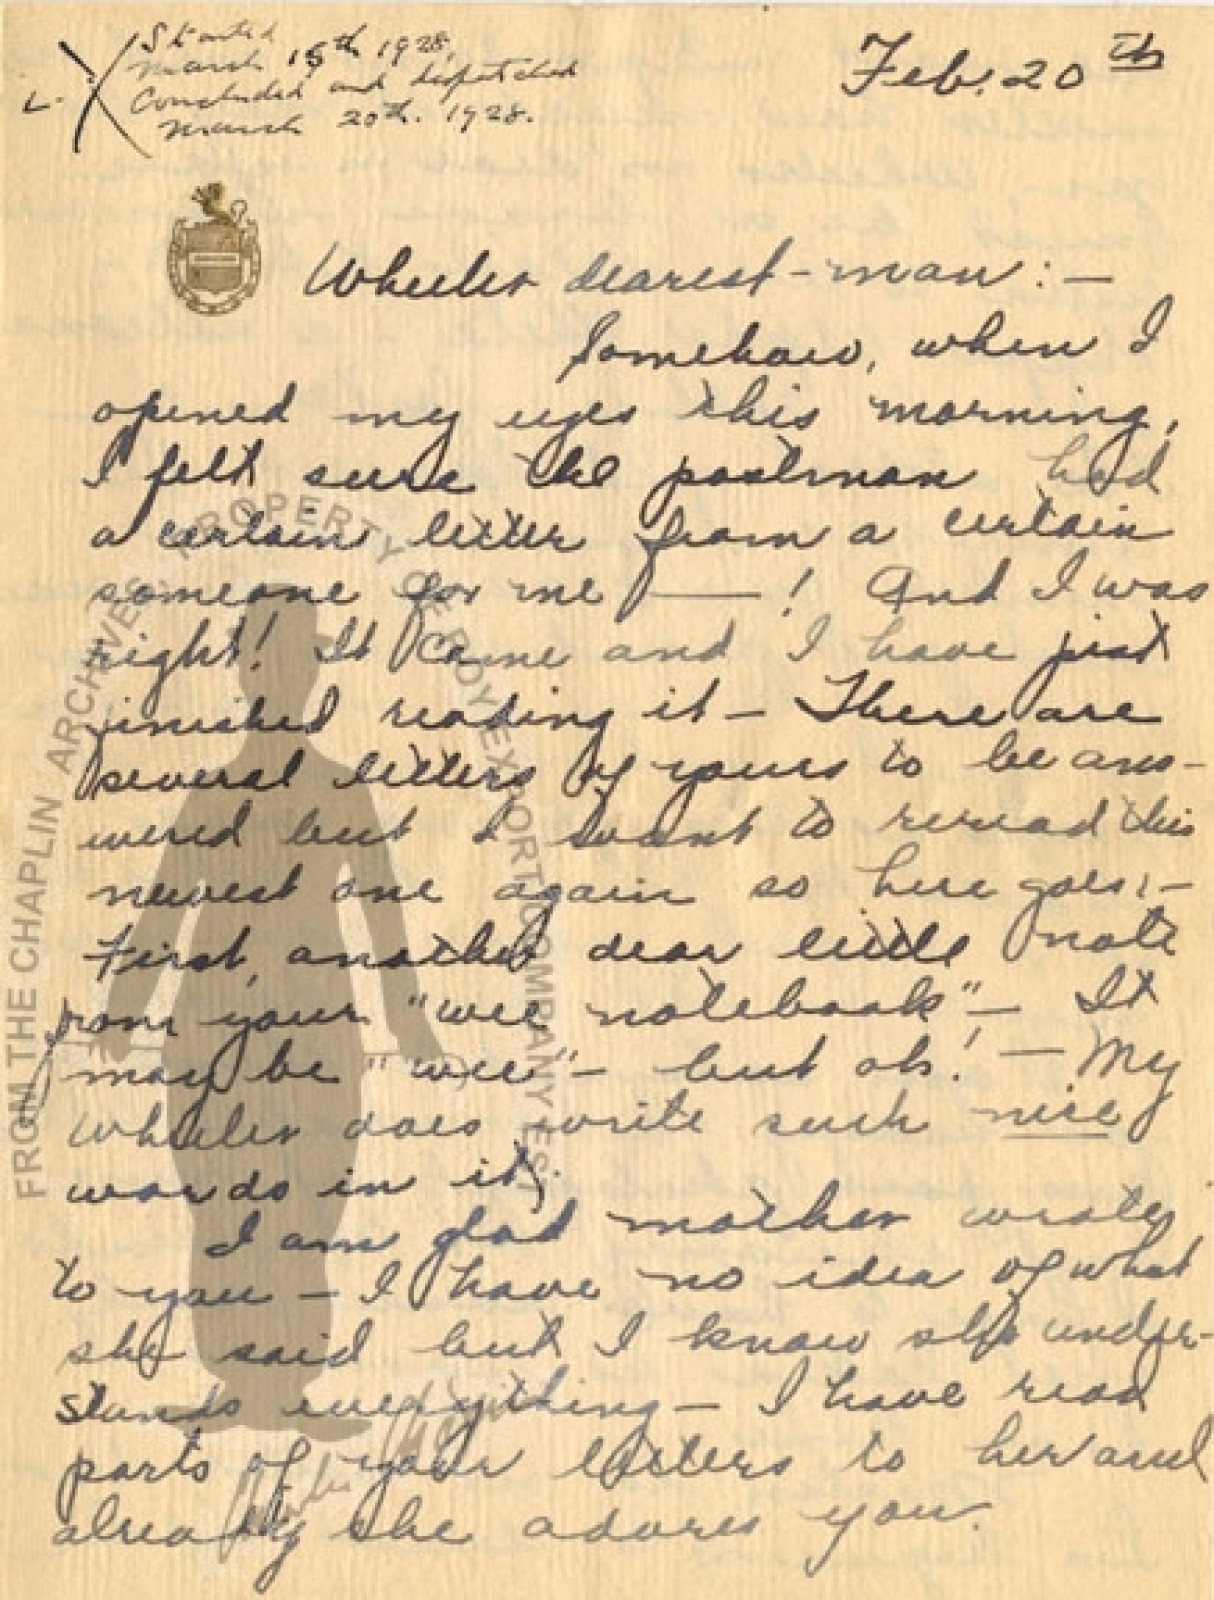 Started
March 15th 1928,
L. Concluded and dispatched
March 20th. 1928.
Feb. 20th
Wheeler dearest-man: —
Somehow, when I
opened my eyes this morning,
I felt sure the postman had
a certain letter from a certain
someone for me —! And I was
right! It came and I have just
finished reading it — There are
several letters of yours to be ans-
wered but I want to reread this
newest one again so here goes: —
First, another dear little note
from your "wee notebook" — It
may be "wee" — but oh! — My
Wheeler does write such nice
words in it.
I am glad mother wrote
to you — I have no idea of what
she said but I know she under-
stands everything — I have read
parts of your letters to her and
already she adores you.
FROM THE CHAPLIN ARCHIVES PROPERTY OF ROY EXPORT COMPANY EST.